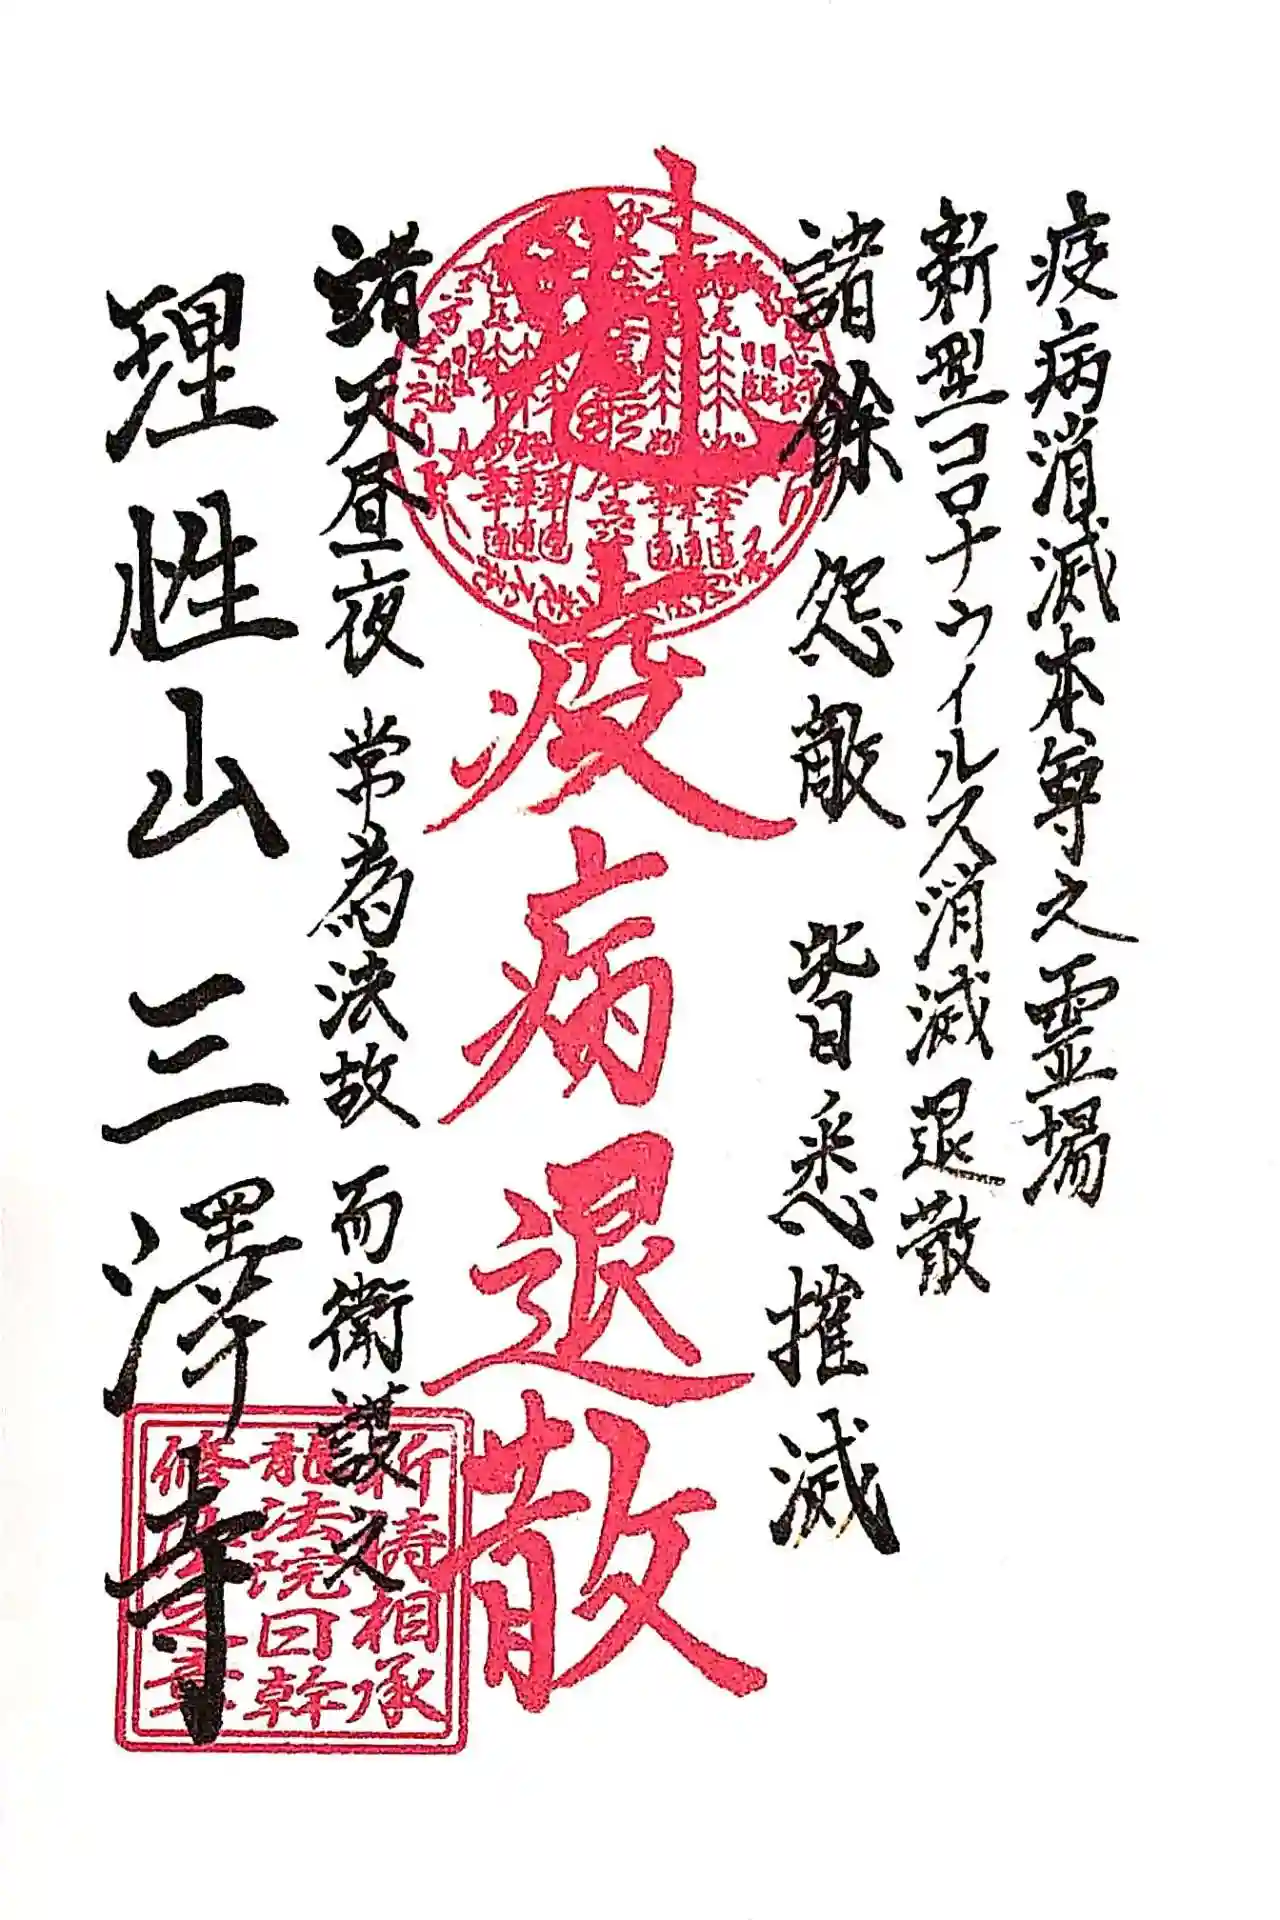 疫病消滅本尊之霊場
新型コロナウィルス消滅退散
諸餘怨敵 皆悉摧滅
疫病退散
諸天昼夜 常為法故 而衛護之
理性山 三澤寺
祈祷相承
龍法院日幹
修